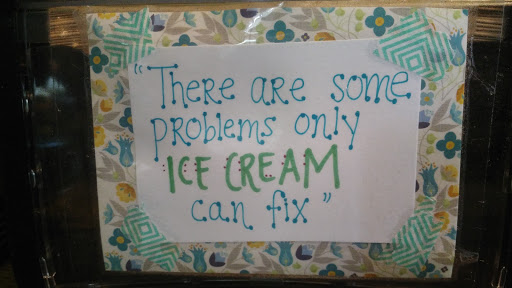 "There are some
problems only
ICE CREAM
can fix"